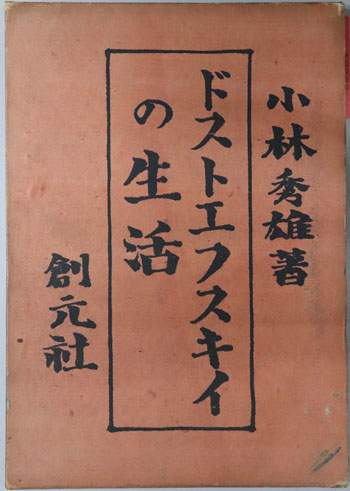 小林秀雄著
ドストエフスキイ
の生活
創元社